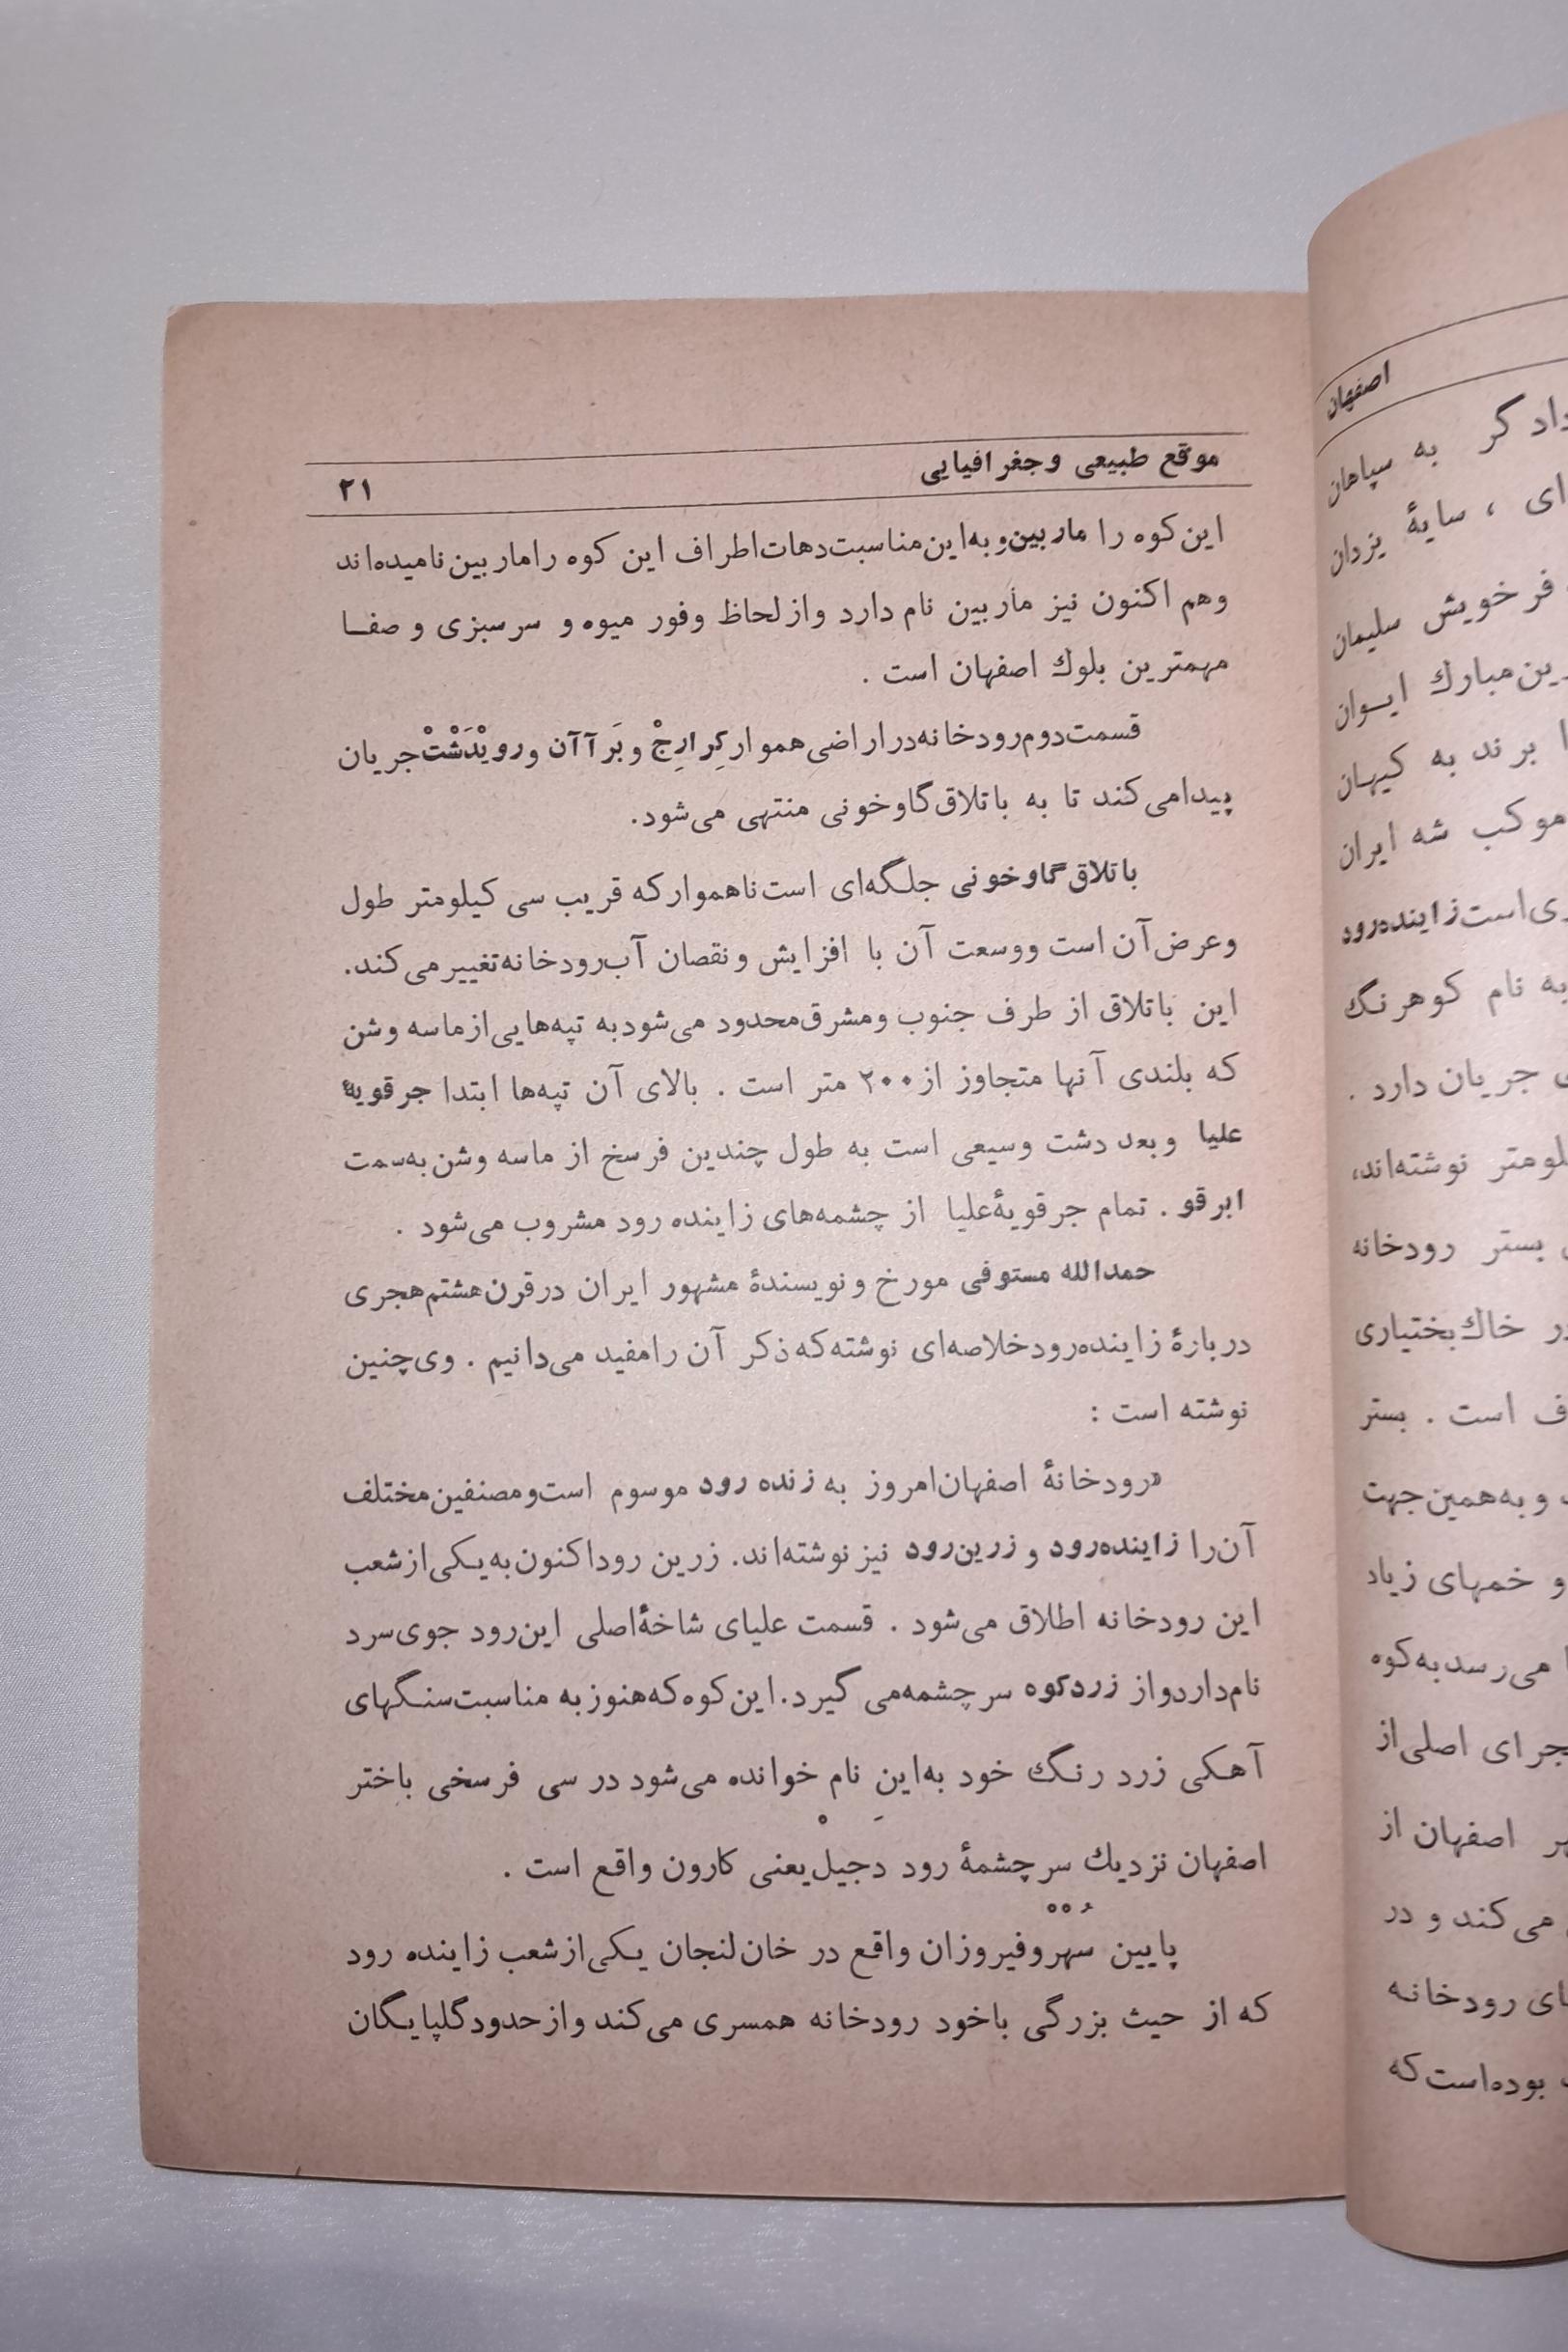 موقع طبیعی و جغرافیایی
۲۱
این کوه را ماربین و به این مناسبت دهات اطراف این کوه را ماربین نامیده‌اند
وهم اکنون نیز ماربین نام دارد و از لحاظ وفور میوه و سرسبزی و صفا
مهمترین بلوك اصفهان است .
قسمت دوم رودخانه در اراضی هموار کِرارِجْ و بَرآآن و رویْدَشْتْ جریان
پیدا می‌کند تا به باتلاق گاوخونی منتهی می‌شود.
باتلاق گاوخونی جلگه‌ای است ناهموار که قریب سی کیلومتر طول
وعرض آن است و وسعت آن با افزایش و نقصان آب رودخانه تغییر می‌کند.
این باتلاق از طرف جنوب و مشرق محدود می‌شود به تپه‌هایی از ماسه و شن
که بلندی آنها متجاوز از ۲۰۰ متر است . بالای آن تپه‌ها ابتدا جرقویهٔ
علیا و بعد دشت وسیعی است به طول چندین فرسخ از ماسه و شن به‌سمت
ابرقو . تمام جرقویهٔ علیا از چشمه‌های زاینده رود مشروب می‌شود .
حمدالله مستوفی مورخ و نویسندهٔ مشهور ایران در قرن هشتم هجری
دربارهٔ زاینده‌رود خلاصه‌ای نوشته که ذکر آن را مفید می‌دانیم . وی چنین
نوشته است :
«رودخانهٔ اصفهان امروز به زنده رود موسوم است و مصنفین مختلف
آن را زاینده‌رود و زرین‌رود نیز نوشته‌اند. زرین رود اکنون به یکی از شعب
این رودخانه اطلاق می‌شود . قسمت علیای شاخهٔ اصلی این رود جوی سرد
نام دارد و از زردکوه سرچشمه می گیرد. این کوه که هنوز به مناسبت سنگهای
آهکی زرد رنگ خود به‌این نام خوانده می‌شود در سی فرسخی باختر
اصفهان نزدیك سرچشمهٔ رود دجیل یعنی کارون واقع است .
پایین سهروفیروزان واقع در خان‌لنجان یکی از شعب زاینده رود
که از حیث بزرگی باخود رودخانه همسری می‌کند و از حدود گلپایگان
اصفهان
دادگر به سپاهان
ای ، سایهٔ یزدان
فر خویش سلیمان
مبارك ایوان
برند به کیهان
موکب شه ایران
است زاینده‌رود
به نام کوهرنگ
جریان دارد .
نوشته‌اند،
بستر رودخانه
خاك بختیاری
است . بستر
و به همین جهت
و خمهای زیاد
می‌رسد به کوه
اصلی از
اصفهان از
می‌کند و در
رودخانه
بوده‌است که